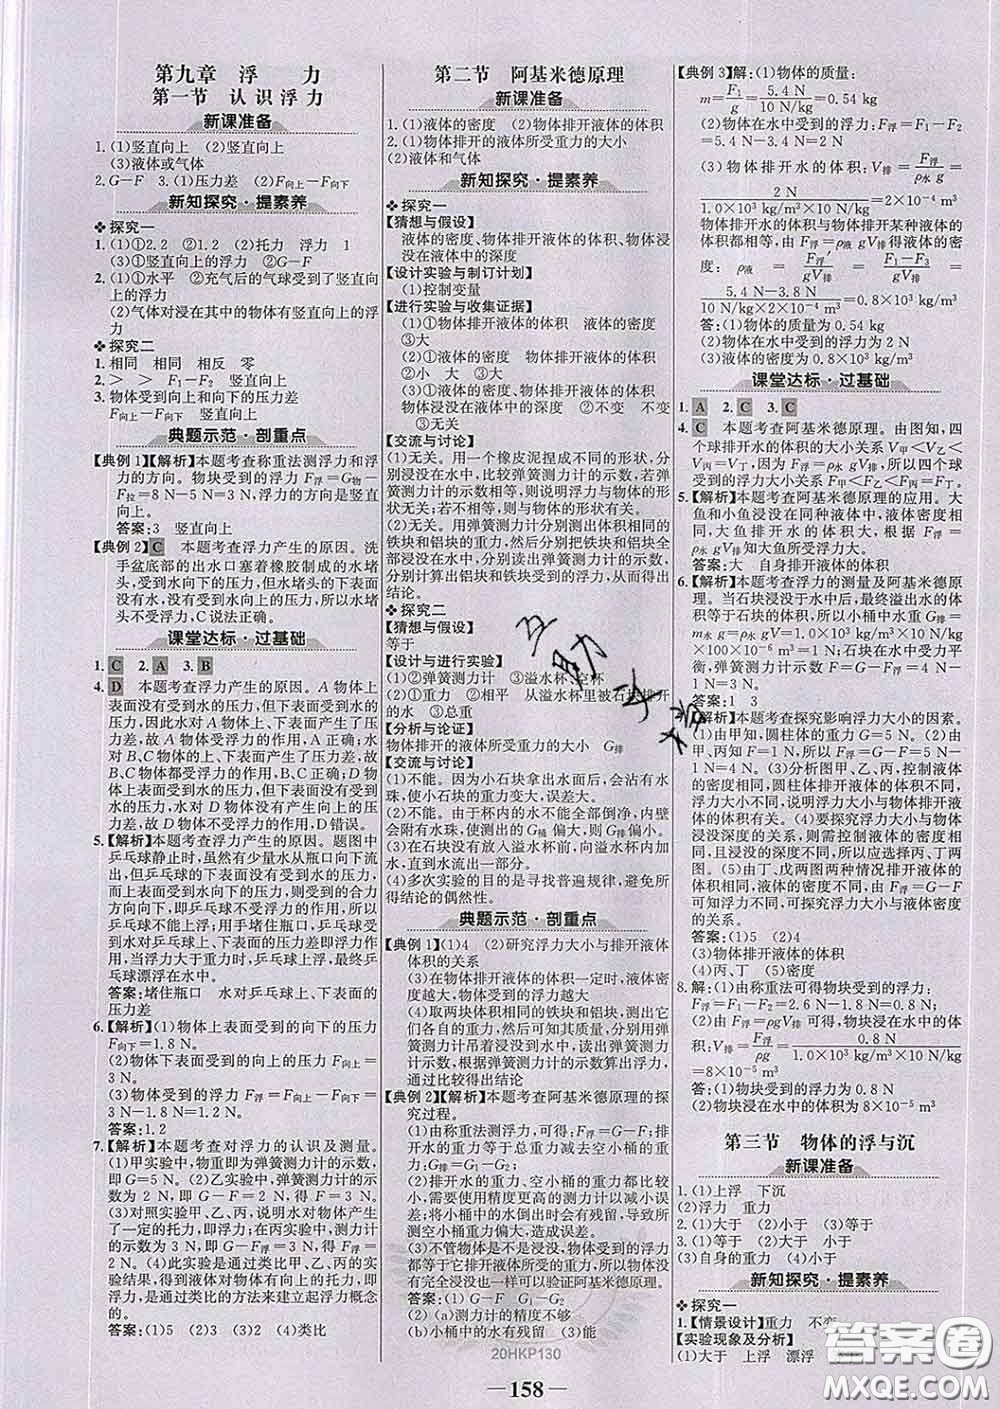 第九章 浮 力
第一节 认识浮力
新课准备
1. (1)竖直向上 (2)竖直向上
(3)液体或气体
2. G−F 3. (1)压力差 (2)F向上−F向下
新知探究·提素养
❖ 探究一
1. (1)①2.2 ②1.2 (2)托力 浮力 1
(3)①竖直向上的浮力 ②G−F
2. (1)①水平 ②充气后的气球受到了竖直
向上的浮力
(2)气体对浸在其中的物体有竖直向上的浮
力
❖ 探究二
1. 相同 相同 相反 零
2. > > F₁−F₂ 竖直向上
3. 物体受到向上和向下的压力差
F向上−F向下 竖直向上
典题示范·剖重点
【典例1】【解析】本题考查称重法测浮力和浮
力的方向。物块受到的浮力F浮=G物−
F拉=8 N−5 N=3 N,浮力的方向竖直向
上。
答案:3 竖直向上
【典例2】C 本题考查浮力产生的原因。洗
手盆底部的出水口塞着橡胶制成的水堵
头,受到水向下的压力,但水堵头的下表面
没有水,没有受到水向上的压力,所以水堵
头不受浮力,C说法正确。
课堂达标·过基础
1. C 2. A 3. B
4. D 本题考查浮力产生的原因。A物体上
表面没有受到水的压力,但下表面受到水的
压力,因此水对A物体产生向上的压力
差,故A物体受浮力的作用,A正确;水对
B、C物体的上、下表面产生向上的压力差,
故B、C物体受浮力的作用,B、C正确;D物
体上表面受到水的压力,但下表面没有受到
水的压力,因此水对D物体没有产生向上的压力
差,故D物体不受浮力的作用,D错误。
5. 【解析】本题考查浮力产生的原因。题图中
乒乓球静止时,虽然有少量水从瓶口向下流
出,但乒乓球的下表面没有受到水向上的压
力,上表面受到水向下的压力,受到的合力
方向向下,即乒乓球不受浮力作用,所以乒
乓球不能上浮;用手堵住瓶口,乒乓球上、下
表面都受到水的压力,乒乓球受浮力作用,
当浮力大于重力时,乒乓球上浮,最终乒乓
球漂浮在水中。
答案:堵住瓶口 水对乒乓球上、下表面的
压力差
6. 【解析】(1)物体上表面受到的向下的压力
F向下=1.8 N。
(2)物体下表面受到的向上的压力F向上=
3 N。
(3)物体受到的浮力F浮=F向上−F向下=
3 N−1.8 N=1.2 N。
答案:1.2
7. 【解析】本题考查对浮力的认识及测量。
(1)甲实验中,物重即为弹簧测力计的示数,
即G=5 N。(2)乙实验中,弹簧测力计的示
数F=2 N,则F浮=G−F=5 N−2 N=3 N。
(3)对照实验甲、乙、丙,说明水对物体产生
了一定的托力,即浮力;在丙实验中,测力计
的示数为3 N,即G−F浮=3 N,所以F浮=
2 N。(4)此实验是通过类比甲、乙、丙的实
验结果,得到液体对物体有向上的托力,即
浮力,是通过类比的方法来建立起浮力概念
的。
答案:(1)5 (2)3 (3)2 (4)类比
第二节 阿基米德原理
新课准备
1. (1)液体的密度 (2)物体排开液体的体积
2. (1)物体排开的液体所受重力的大小
(2)液体和气体
新知探究·提素养
❖ 探究一
【猜想与假设】
液体的密度、物体排开液体的体积、物体浸
没在液体中的深度
【设计实验与制订计划】
(1)控制变量
【进行实验与收集证据】
(1)①物体排开液体的体积 液体的密度
③大
(2)①液体的密度 物体排开液体的体积
②小 大 ③大
(3)①液体的密度 物体排开液体的体积
物体浸没在液体中的深度 ②不变 不变
③无关
【交流与讨论】
(1)无关。用一个橡皮泥捏成不同的形状,分
别浸没在水中,比较弹簧测力计的示数,若弹簧
测力计的示数相等,则说明浮力与物体的形状
无关,即浮力与物体的形状有关。
(2)无关。用弹簧测力计分别测出体积相同的
铁块和铝块的重力,然后把铁块和铝块全部
浸没在水中,分别读出弹簧测力计的示数,
分别计算出铝块和铁块受到的浮力,比较得出
结论。
❖ 探究二
【猜想与假设】
等于
【设计与进行实验】
(1)②弹簧测力计 ③溢水杯 空杯
(2)①重力 ②相平 从溢水杯里被石块排开
的水 ③总重
【分析与论证】
物体排开的液体所受重力的大小 G排
【交流与讨论】
(1)不能。因为小石块拿出水面后,会沾有水
珠,使小石块的重力变大,误差大。
(2)不能。由于杯内的水不能全部倒净,内壁
会附有水珠,使测出的G桶偏大,则G排偏小。
(3)在石块没有放入溢水杯前,向溢水杯内加
水,直到水流出一些再实验。
(4)多次实验的目的是寻找普遍规律,避免实验
结论的偶然性。
典题示范·剖重点
【典例1】(1)4 (2)研究浮力大小与排开液体
体积的关系
(3)在物体排开液体的体积一定时,液体
密度越大,物体受到的浮力越大
(4)取两块体积相同的铁块和铝块,测出它
们各自的重力,然后用细线将其分别挂在
弹簧测力计吊着浸没在水中,读出弹簧测力
计示数,根据弹簧测力计的示数算出浮力,
通过比较得出结论
【典例2】【解析】本题考查阿基米德原理的探
究过程。
(1)由称重法测浮力,浮力等于G−F;排
开水的重力等于总重力减去空小桶的重
力,即G₁−G₂。
(2)弹簧测力计、空小桶的重力都比较小,
测量这样的力要选择精度小的测力计以减小误
差;将小桶中的水倒出时会有残留,导致所测
空小桶的重力偏大,造成误差。
(3)不管物体是不是浸没,物体受到的浮力
都等于它排开液体所受的重力,所以物体没
有完全浸没也一样可以验证阿基米德原理。
答案:(1)G−F G₁−G₂
(2) (a)测力计的精度不够
(b)小桶中的水有残留 (3)能
20HKP130
— 158 —
【典例3】解:(1)物体的质量:
m=F₁/g=5.4 N/10 N/kg=0.54 kg
(2)物体在水中受到的浮力:F浮=F₁−F₂
=5.4 N−3.4 N=2 N
(3) 物体排开水的体积:V排=F浮/ρ水g=
2 N/(1.0×10³ kg/m³×10 N/kg)=2×10⁻⁴ m³
物体排开水的体积与排开某种液体的
体积都相等,由F浮=ρ液gV排得液体的密
度:ρ液=F浮′/gV排=(F₁−F₃)/gV排=
(5.4 N−3.8 N)/(10 N/kg×2×10⁻⁴ m³)=0.8×10³ kg/m³
答:(1)物体的质量为0.54 kg
(2)物体在水中受到的浮力为2 N
(3)液体的密度为0.8×10³ kg/m³
课堂达标·过基础
1. A 2. C 3. C
4. C 本题考查阿基米德原理。由图知,四
个球排开水的体积的大小关系V甲<V乙<
V丙=V丁,因为F浮=ρ水gV排,所以四个球受
到的浮力大小关系F甲<F乙<F丙=F丁。
5. 【解析】本题考查阿基米德原理的应用。大
鱼和小鱼浸没在同种液体中,液体密度相
同,大鱼排开水的体积大,根据F浮=
ρ水gV排知大鱼所受浮力大。
答案:大 自身排开液体的体积
6. 【解析】本题考查浮力的测量及阿基米德原
理。当石块浸没于水中后,最终溢出水的体
积等于石块的体积,所以溢出水重G排=
m水g=ρ水gV排=1.0×10³ kg/m³×10 N/kg
×100×10⁻⁶ m³=1 N;石块在水中受力平
衡,弹簧测力计的示数F=G−F浮=4 N−1 N
=3 N。
答案:1 3
【解析】本题考查探究影响浮力大小的因素。
(1)由甲知,圆柱体的重力G=5 N。(2)由
甲、丙知F浮=4 N。(3)分析图甲、乙、丙,控制液体
的密度相同,圆柱体排开液体的体积不同,
浮力大小不同,说明浮力大小与物体排开液
体的体积有关。(4)要探究浮力大小与物体
浸没深度的关系,则需控制液体的密度相同,
且浸没的深度不同,所以应选择丙、丁两
图。(5)由丁、戊两图两种情况排开液体的
体积相同,液体密度不同,由F浮=G−F
可知浮力不同,可探究浮力大小与液体密度
的关系。
答案:(1)5 (2)4
(3)物体排开液体的体积
(4)丙、丁 (5)密度
8. 解:(1)由称重法可得物块受到的浮力:
F浮=F₁−F₂=2.6 N−1.8 N=0.8 N
(2)由F浮=ρgV排可得,物块浸没在水中的体
积:V排=F浮/ρg=0.8 N/(1.0×10³ kg/m³×10 N/kg)
=8×10⁻⁵ m³
答:(1)物块受到的浮力为0.8 N
(2)物块浸在水中的体积为8×10⁻⁵ m³
第三节 物体的浮与沉
新课准备
1. (1)上浮 下沉
(2)浮力 重力
2. (1)大于 (2)小于 (3)等于
3. (1)大于 (2)大于
(3)自身的重力 (4)小于
新知探究·提素养
❖ 探究一
1. 【情景设计】重力 不变
【实验现象及分析】
(1)大于 上浮 漂浮
答案圈
MXQE.COM